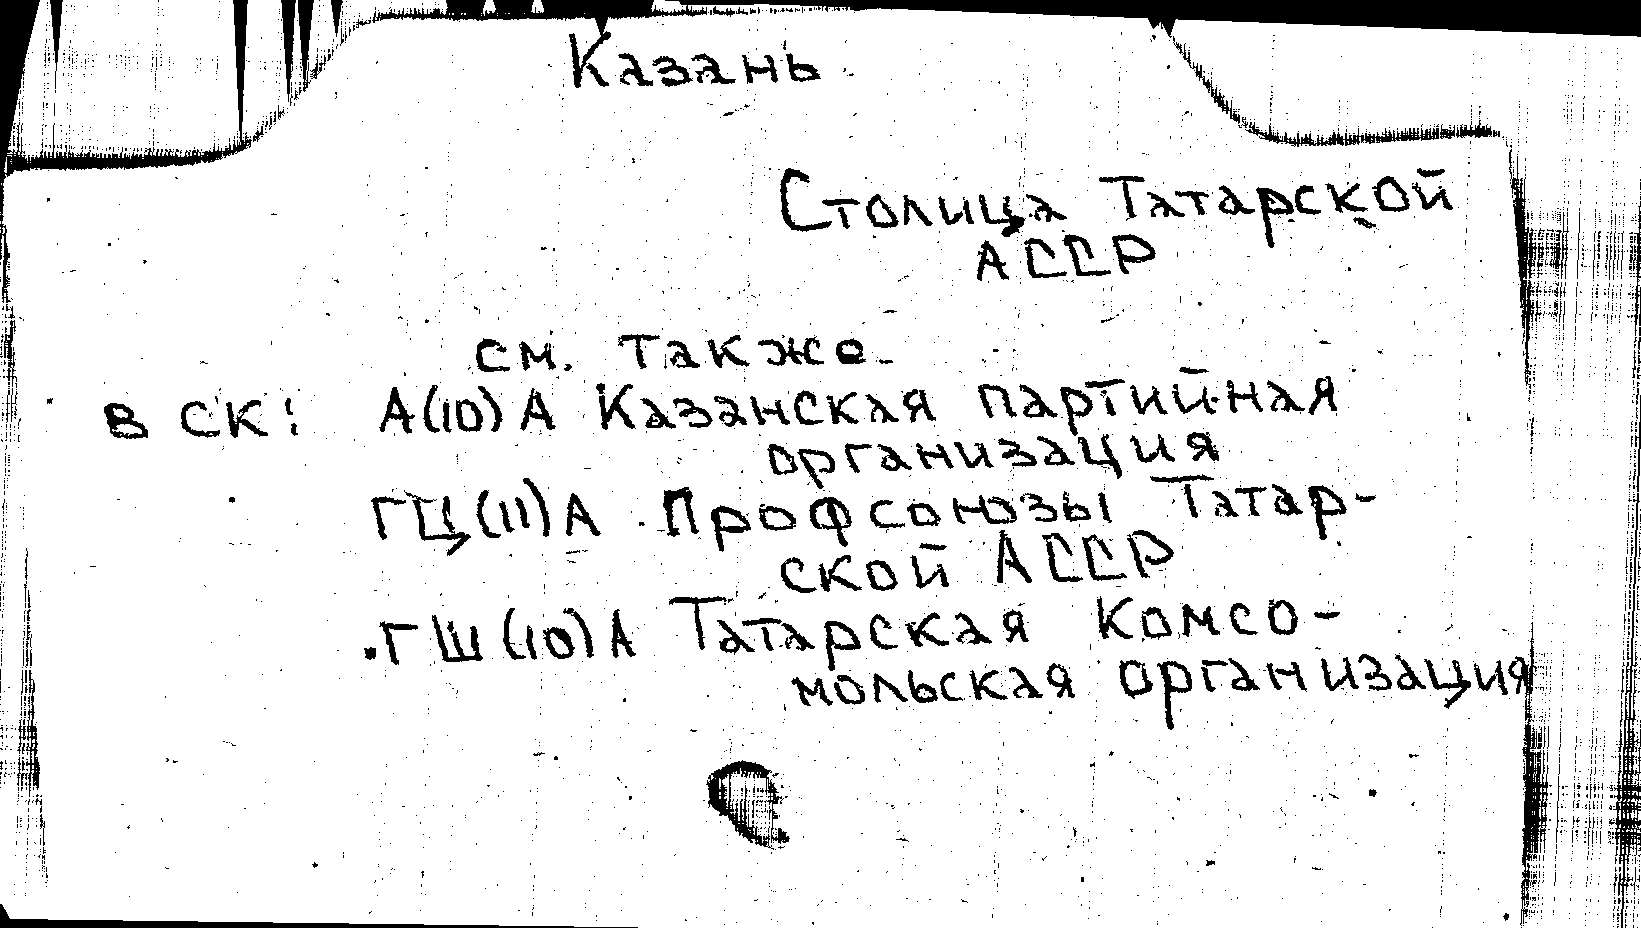 Казань
Столица Татарской
АССР
см. также
в СК: А(10)А Казанская партийная
организация
ГЦ(11)А Профсоюзы Татар-
ской АССР
ГШ(10)А Татарская Комсо-
мольская организация